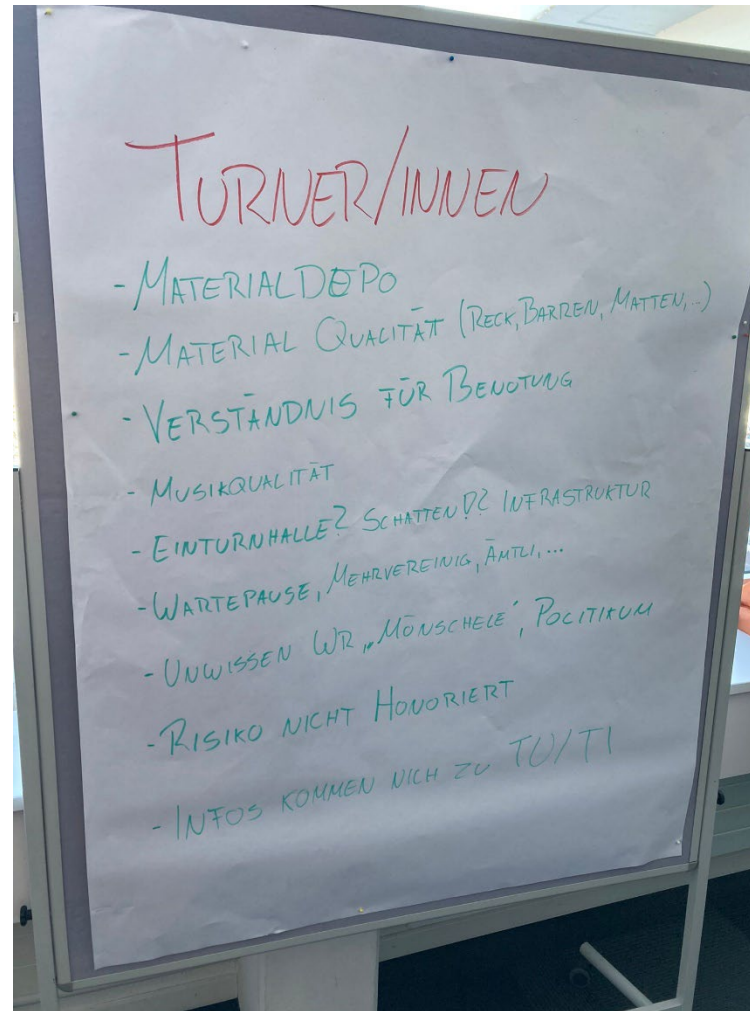 TURNER/INNEN
- MATERIALDEPO
- MATERIAL QUALITÄT (RECK, BARREN, MATTEN,..)
- VERSTÄNDNIS FÜR BENOTUNG
- MUSIKQUALITÄT
- EINTURNHALLE? SCHATTEN!? INFRASTRUKTUR
- WARTEPAUSE, MEHRVEREINIG, ÄMTLI,...
- UNWISSEN WR „MÖNSCHELE“, POLITIKUM
- RISIKO NICHT HONORIERT
- INFOS KOMMEN NICH ZU TU/TI